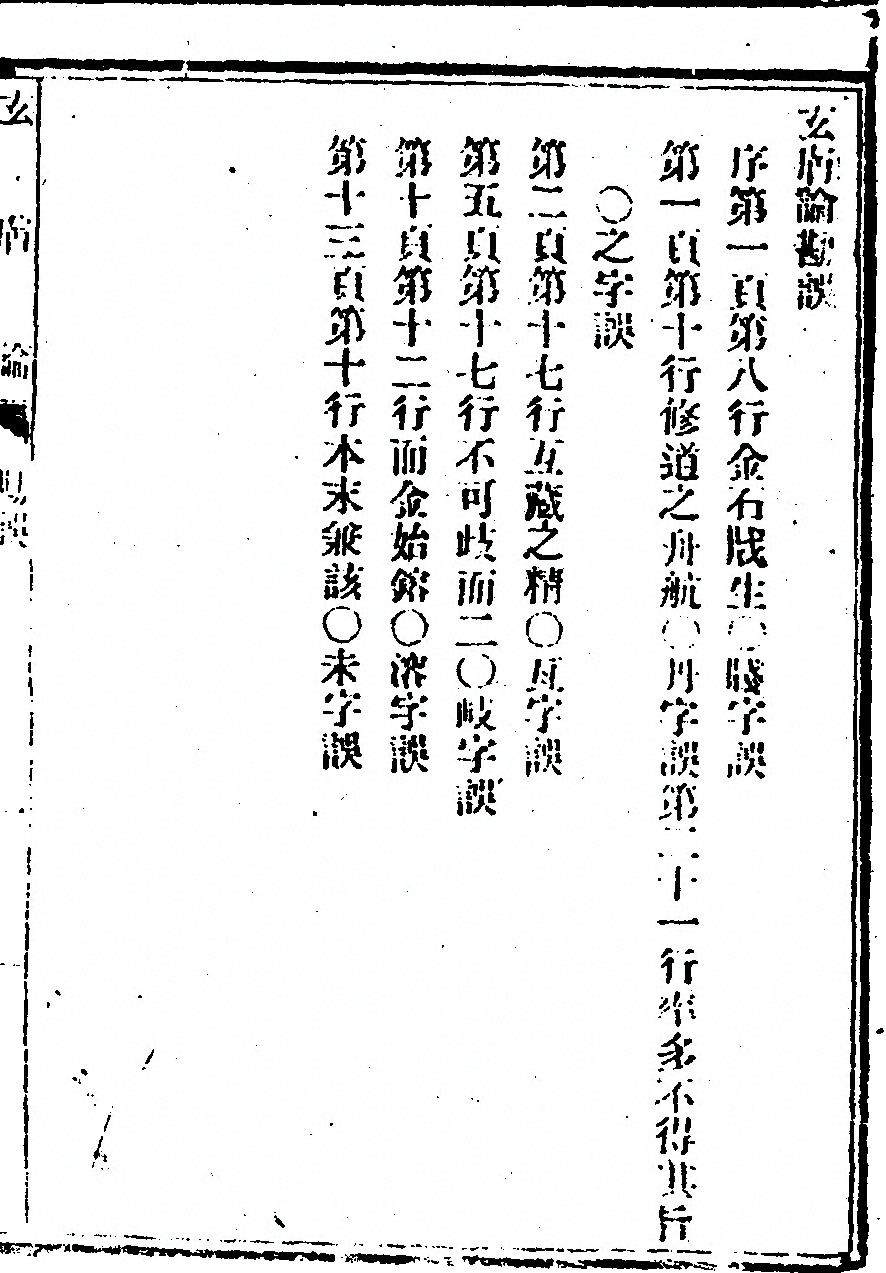 玄牝論勘誤
序第一頁第八行金石戕生〇賤字誤
第一頁第十行修道之舟航〇丹字誤第二十一行率多不得其旨
〇之字誤
第二頁第十七行互藏之精〇亙字誤
第五頁第十七行不可歧而二〇岐字誤
第十頁第十二行而金始鎔〇溶字誤
第十三頁第十行本末兼該〇未字誤
玄牝論 誤